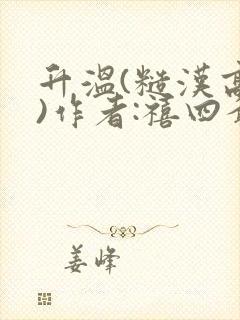 升温(糙汉高
)作者:禧四
姜峰